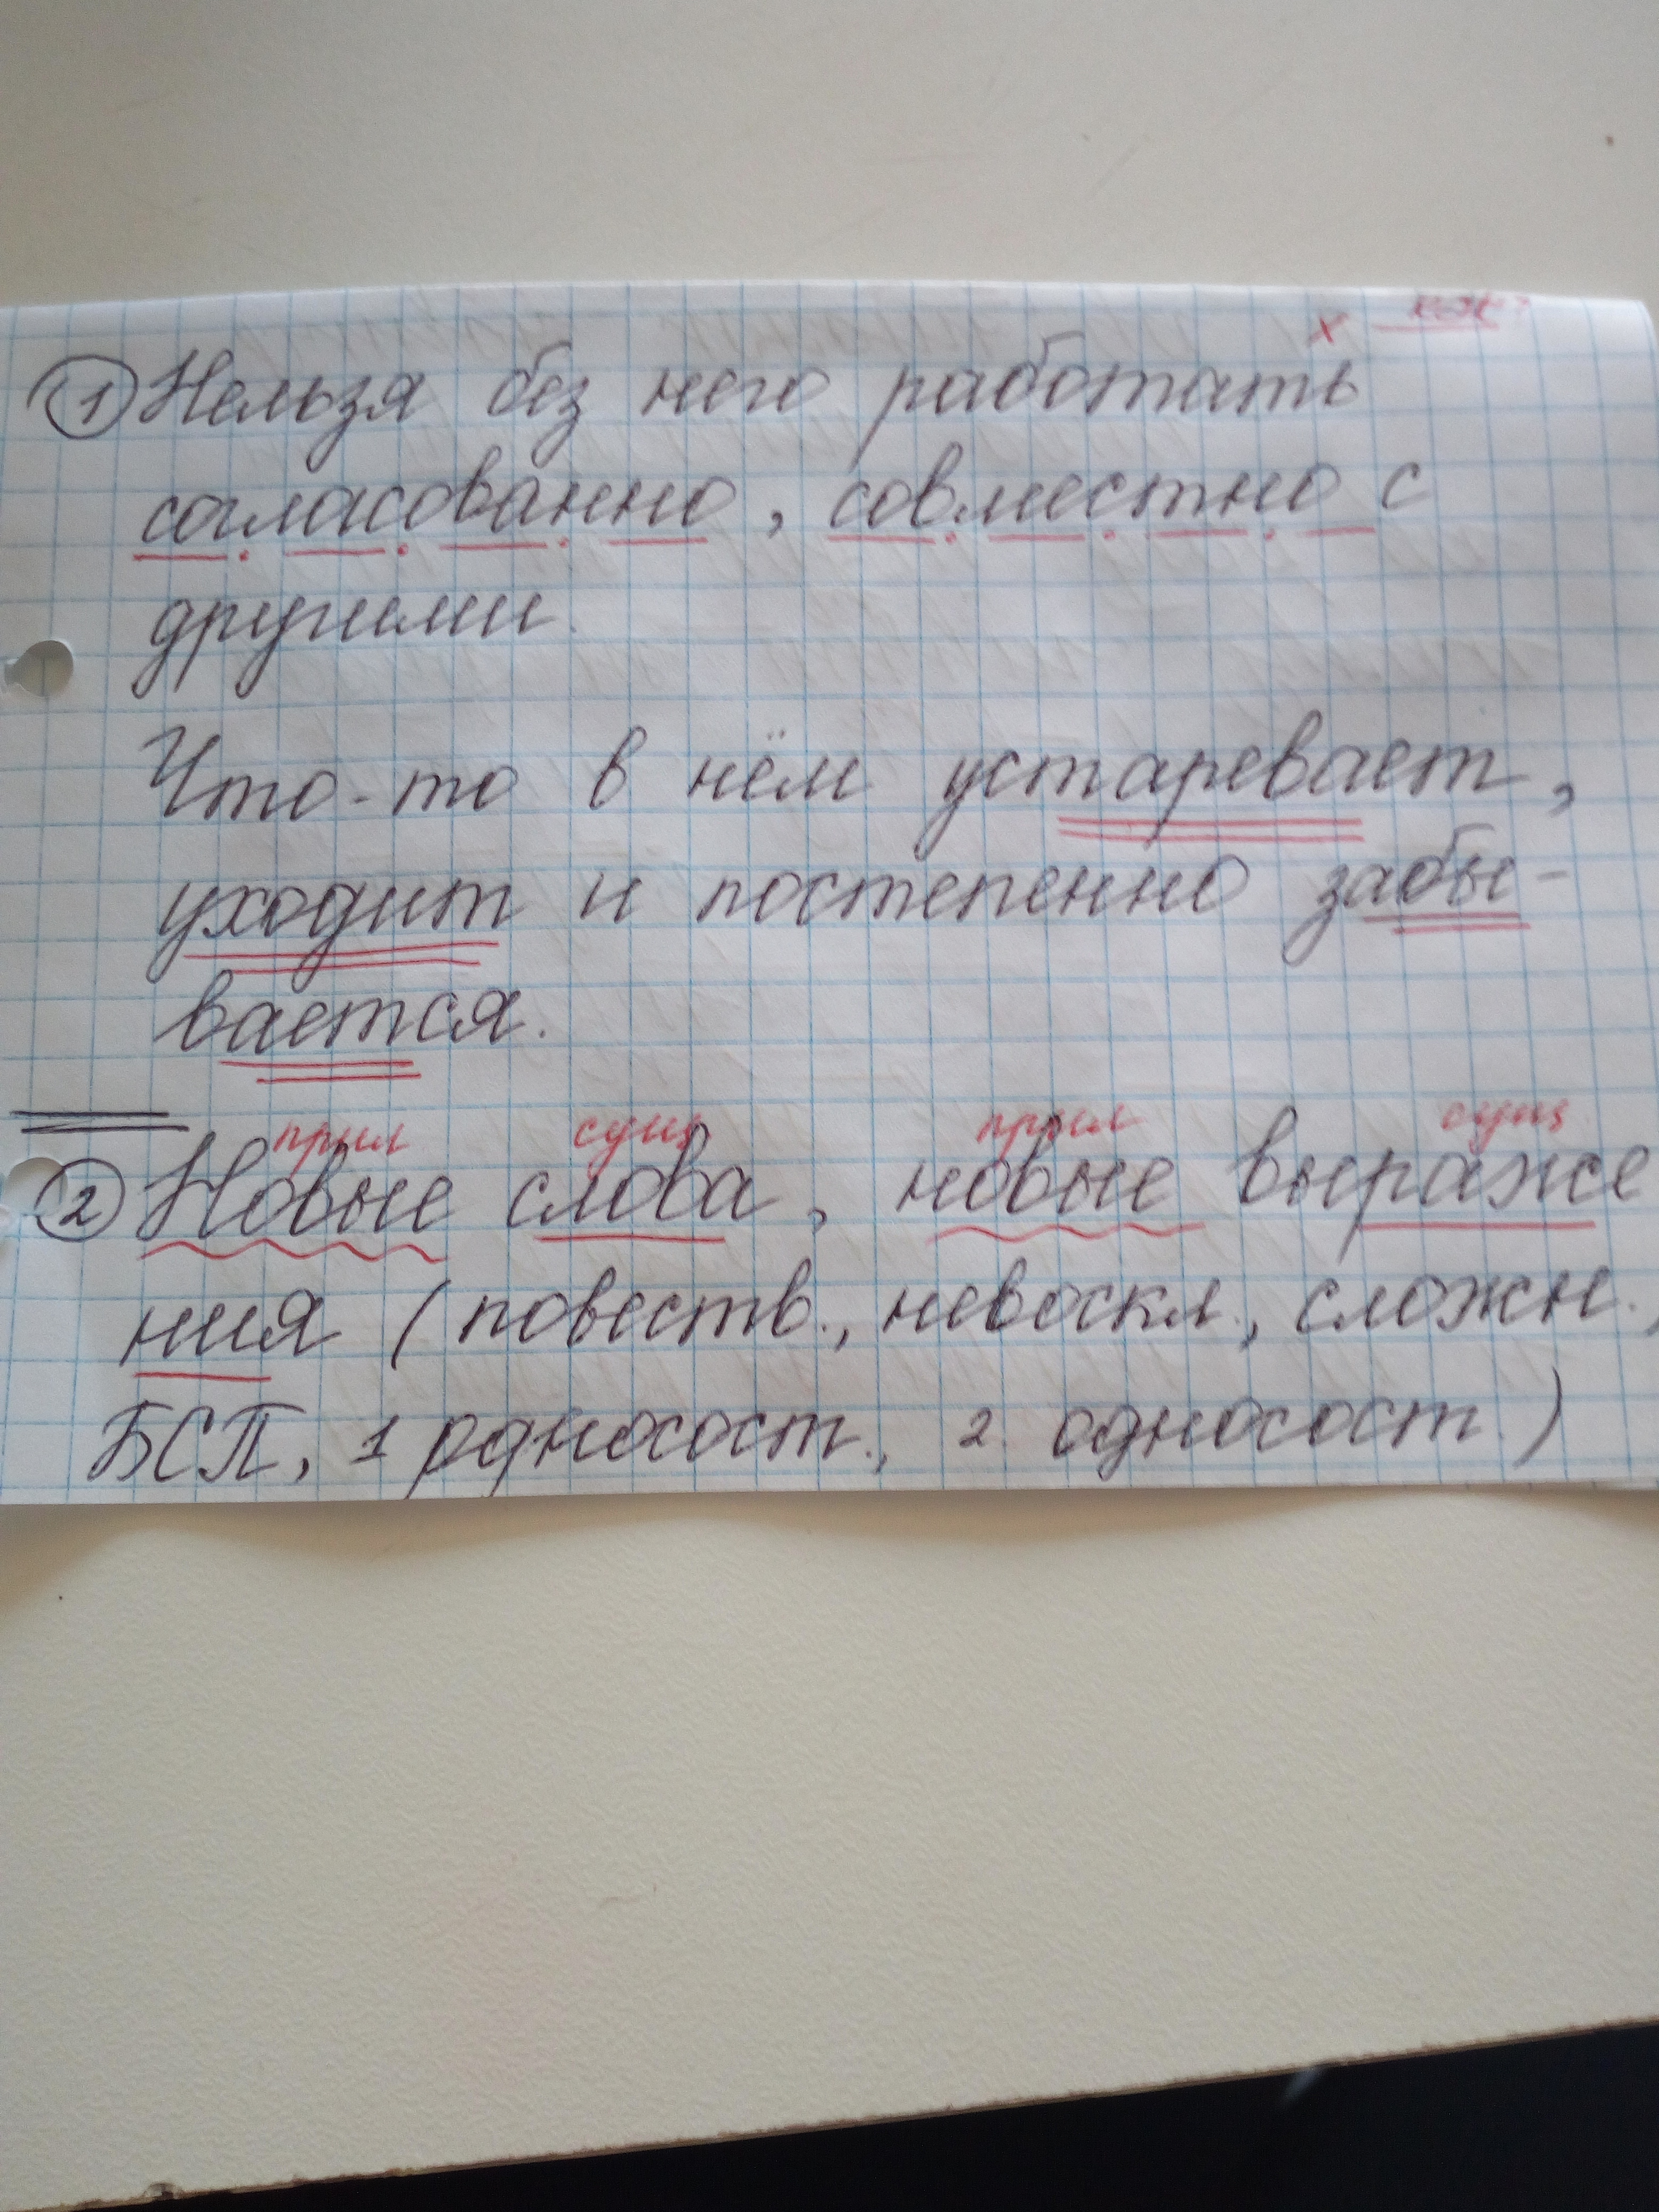 х как?
① Нельзя без него работать
согласованно, совместно с
другими.
Что-то в нём устаревает,
уходит и постепенно забы-
вается.
прил сущ прил сущ
② Новые слова, новые выраже
ния (повеств., невоскл., сложн.,
БСП, 1 односост., 2. односост.)